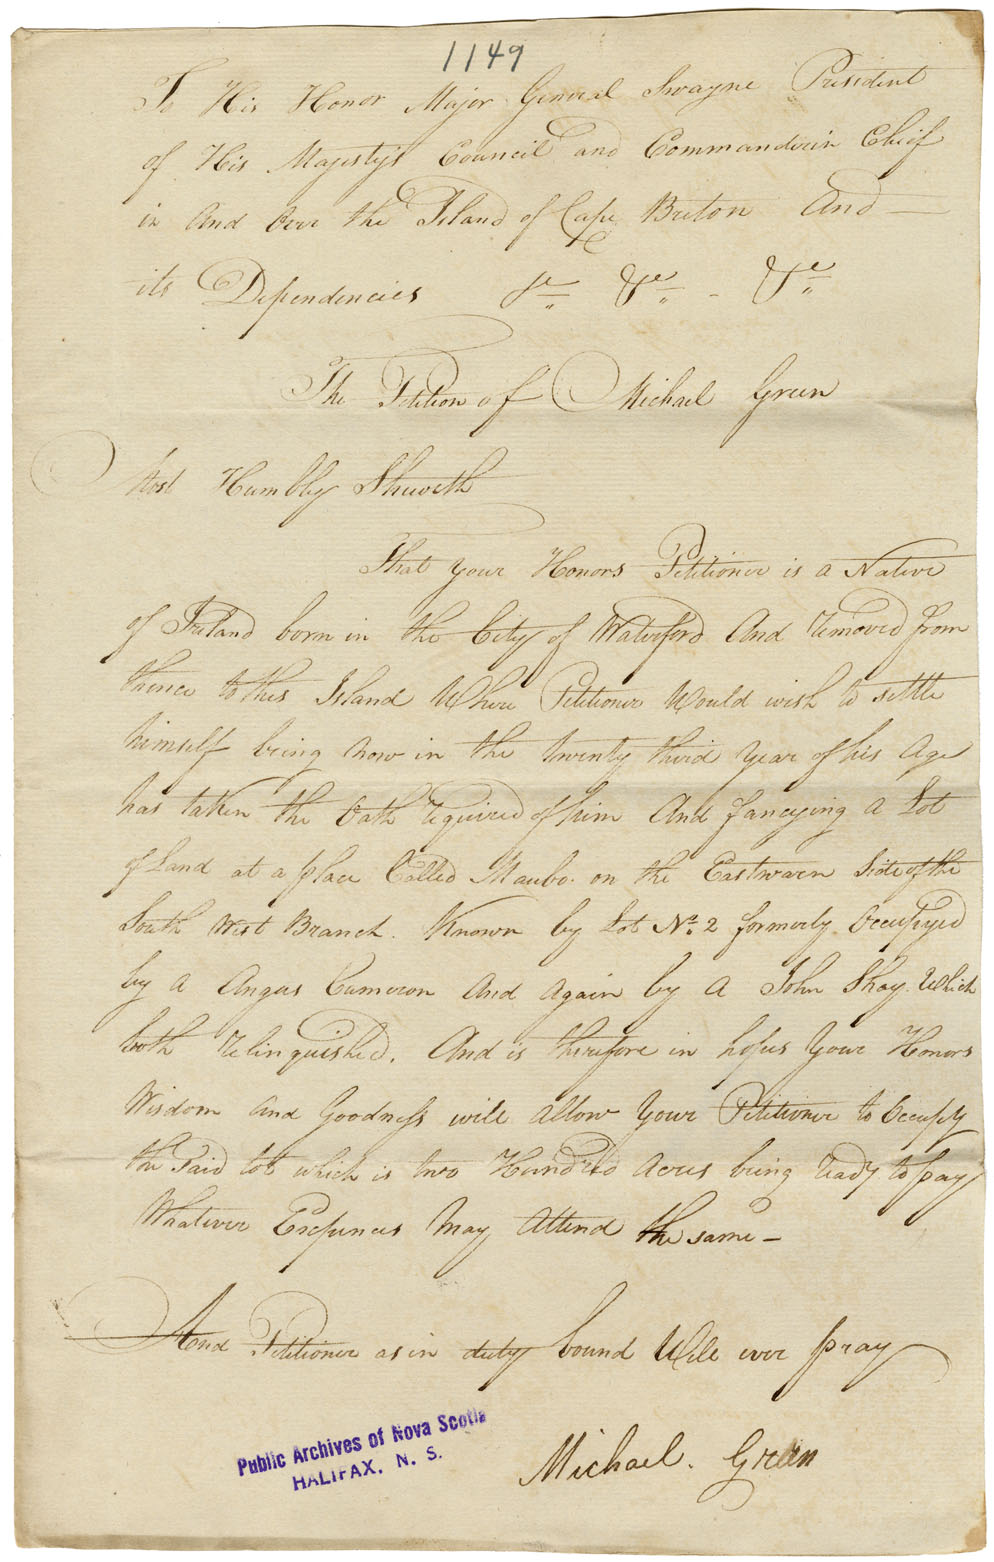 1149
To His Honor Major General Swayne President
of His Majestys Council and Commander in Chief
in And Over the Island of Cape Breton And —
its Dependencies &c &c - &c
The Petition of Michael Green
Most Humbly Sheweth
That your Honors Petitioner is a Native
of Ireland born in the City of Waterford And removed from
thence to this Island Where Petitioner Would wish to settle
himself being Now in the twenty third Year of his Age
has taken the Oath required of him And fancying a Lot
of Land at a place Called Maubo. on the Eastwarn Side of the
South West Branch. Known by Lot No. 2 formerly Occupyed
by a Angus Cameron And Again by A John Shay. Which
both relinquished. And is therefore in hopes Your Honors
Wisdom And Goodness will Allow Your Petitioner to Occupy
the Said lot which is two Hundred Acres being ready to pay
Whatever Expences May Attend the same —
And Petitioner as in duty bound Will ever pray
Michael. Green
Public Archives of Nova Scotia
HALIFAX, N. S.